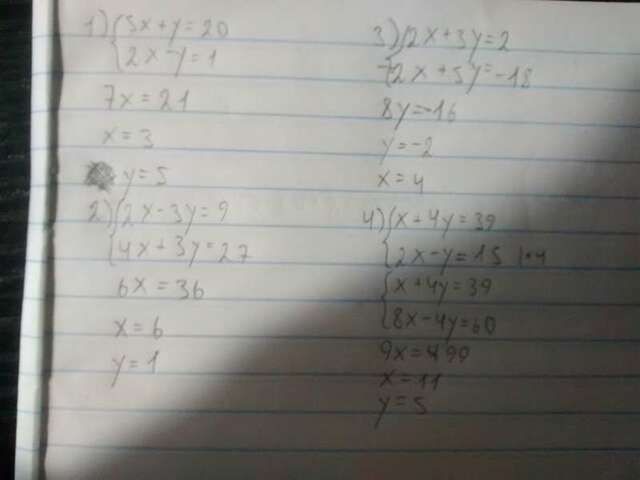 1) { 5x + y = 20
2x - y = 1
7x = 21
x = 3
y = 5
2) { 2x - 3y = 9
4x + 3y = 27
6x = 36
x = 6
y = 1
3) { 2x + 3y = 2
-2x + 5y = -18
8y = -16
y = -2
x = 4
4) { x + 4y = 39
2x - y = 15 |·4
{ x + 4y = 39
8x - 4y = 60
9x = 99
x = 11
y = 5